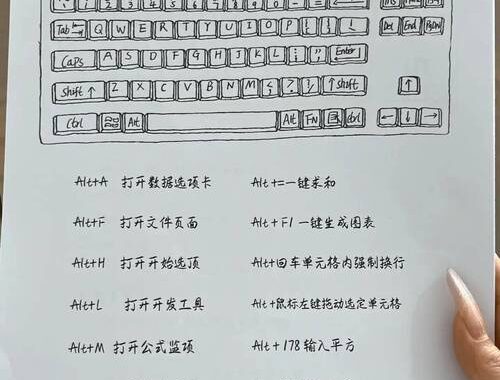 Tab Q W E R T Y U I O P Del End PgDn
Caps A S D F G H J K L Enter
Shift ↑ Z X C V B N M ↑ Shift ↑
Ctrl Alt Alt FN Ctrl ← ↓ →
Alt+A 打开数据选项卡 Alt+=一键求和
Alt+F 打开文件页面 Alt+F1 一键生成图表
Alt+H 打开开始选顶 Alt+回车单元格内强制换行
Alt+L 打开开发工具 Alt+鼠标左键拖动选定单元格
Alt+M 打开公式监项 Alt+178输入平方